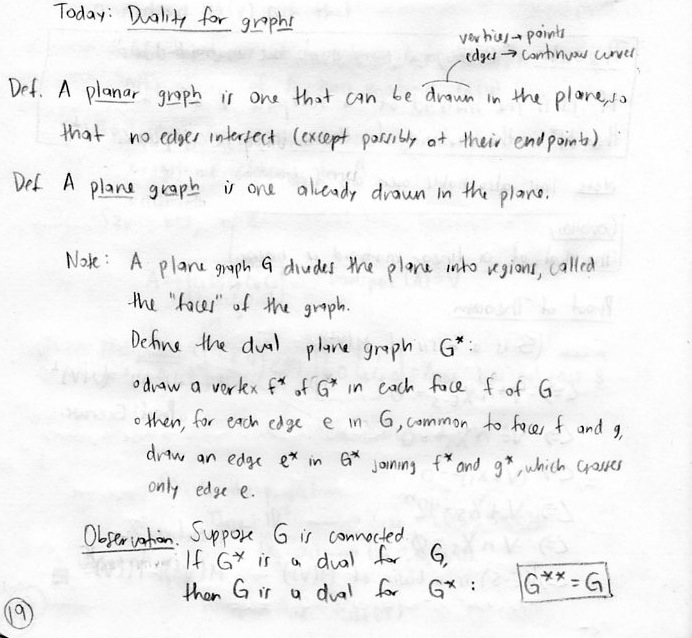 Today: Duality for graphs
vertices → points
edges → continuous curves
Def. A planar graph is one that can be drawn in the plane, so
that no edges intersect (except possibly at their endpoints)
Def A plane graph is one already drawn in the plane.
Note: A plane graph G divides the plane into regions, called
the "faces" of the graph.
Define the dual plane graph G*:
o draw a vertex f* of G* in each face f of G
o then, for each edge e in G, common to faces f and g,
draw an edge e* in G* joining f* and g*, which crosses
only edge e.
Observation. Suppose G is connected.
If G* is a dual for G,
then G is a dual for G* : G** = G
19